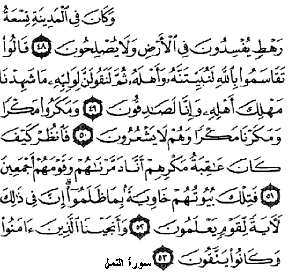 وَكَانَ فِي الْمَدِينَةِ تِسْعَةُ
رَهْطٍ يُفْسِدُونَ فِي الْأَرْضِ وَلَا يُصْلِحُونَ ٤٨ قَالُوا
تَقَاسَمُوا بِاللَّهِ لَنُبَيِّتَنَّهُ وَأَهْلَهُ ثُمَّ لَنَقُولَنَّ لِوَلِيِّهِ مَا شَهِدْنَا
مَهْلِكَ أَهْلِهِ وَإِنَّا لَصَادِقُونَ ٤٩ وَمَكَرُوا مَكْرًا
وَمَكَرْنَا مَكْرًا وَهُمْ لَا يَشْعُرُونَ ٥٠ فَانْظُرْ كَيْفَ
كَانَ عَاقِبَةُ مَكْرِهِمْ أَنَّا دَمَّرْنَاهُمْ وَقَوْمَهُمْ أَجْمَعِينَ
٥١ فَتِلْكَ بُيُوتُهُمْ خَاوِيَةً بِمَا ظَلَمُوا إِنَّ فِي ذَلِكَ
لَآيَةً لِقَوْمٍ يَعْلَمُونَ ٥٢ وَأَنْجَيْنَا الَّذِينَ ءَامَنُوا
وَكَانُوا يَتَّقُونَ ٥٣ سورة النمل